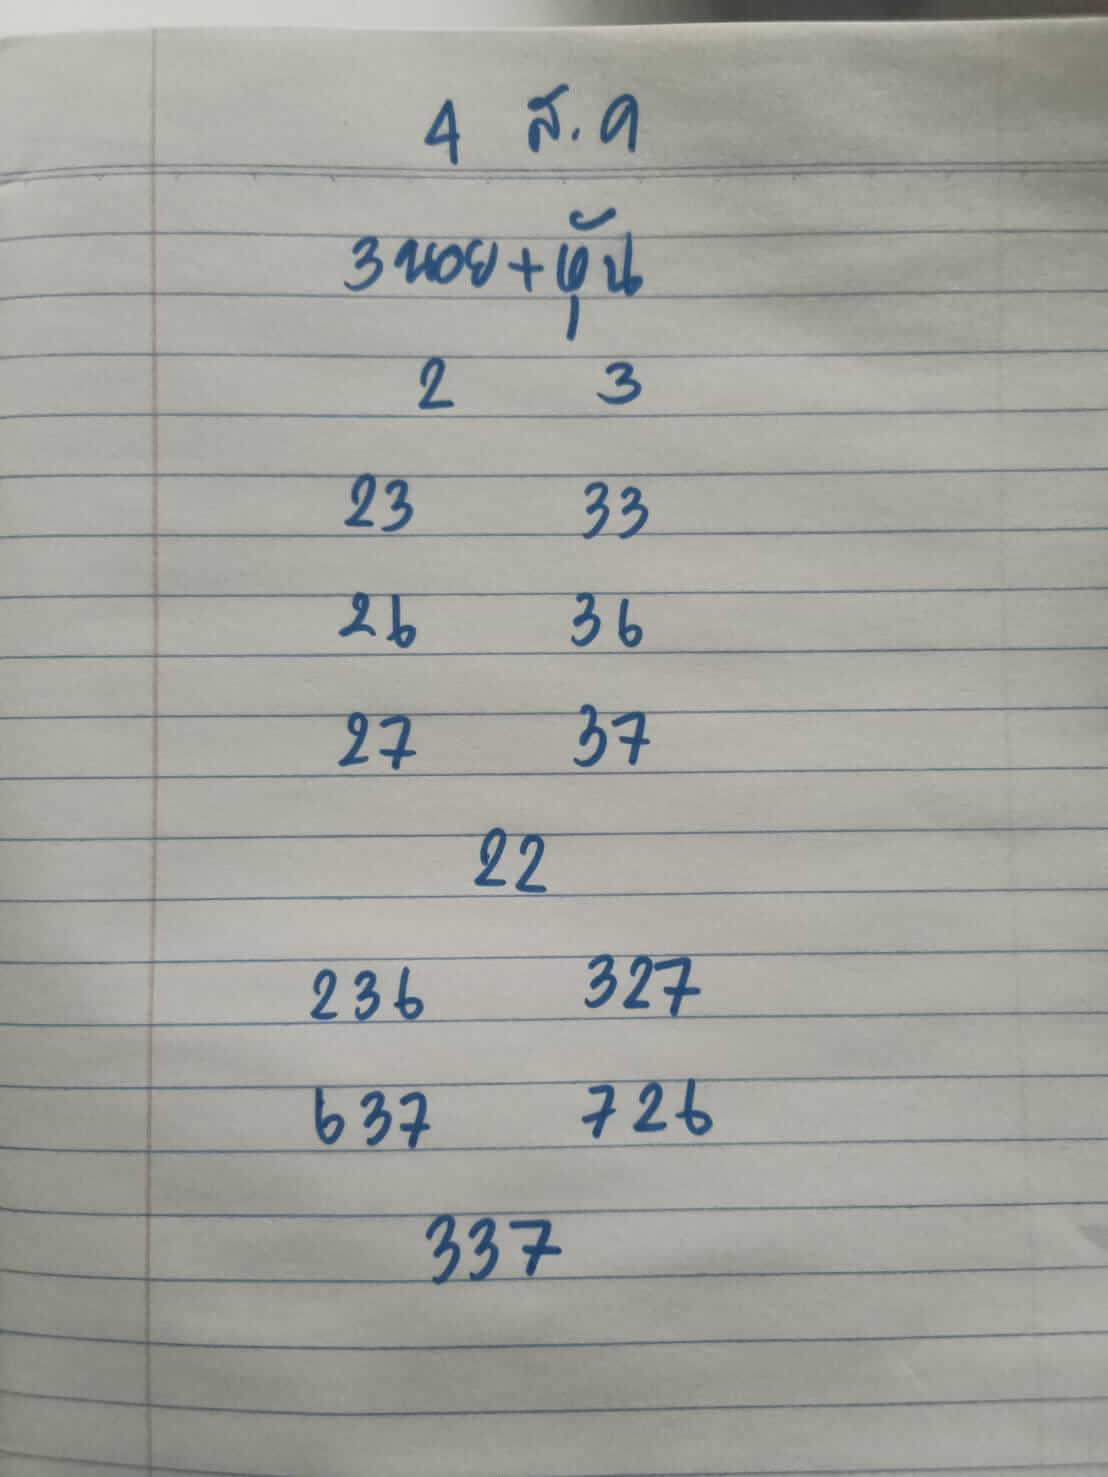 4 ส.ค
3 นอย + หุ้น
2 3
23 33
26 36
27 37
22
236 327
637 726
337